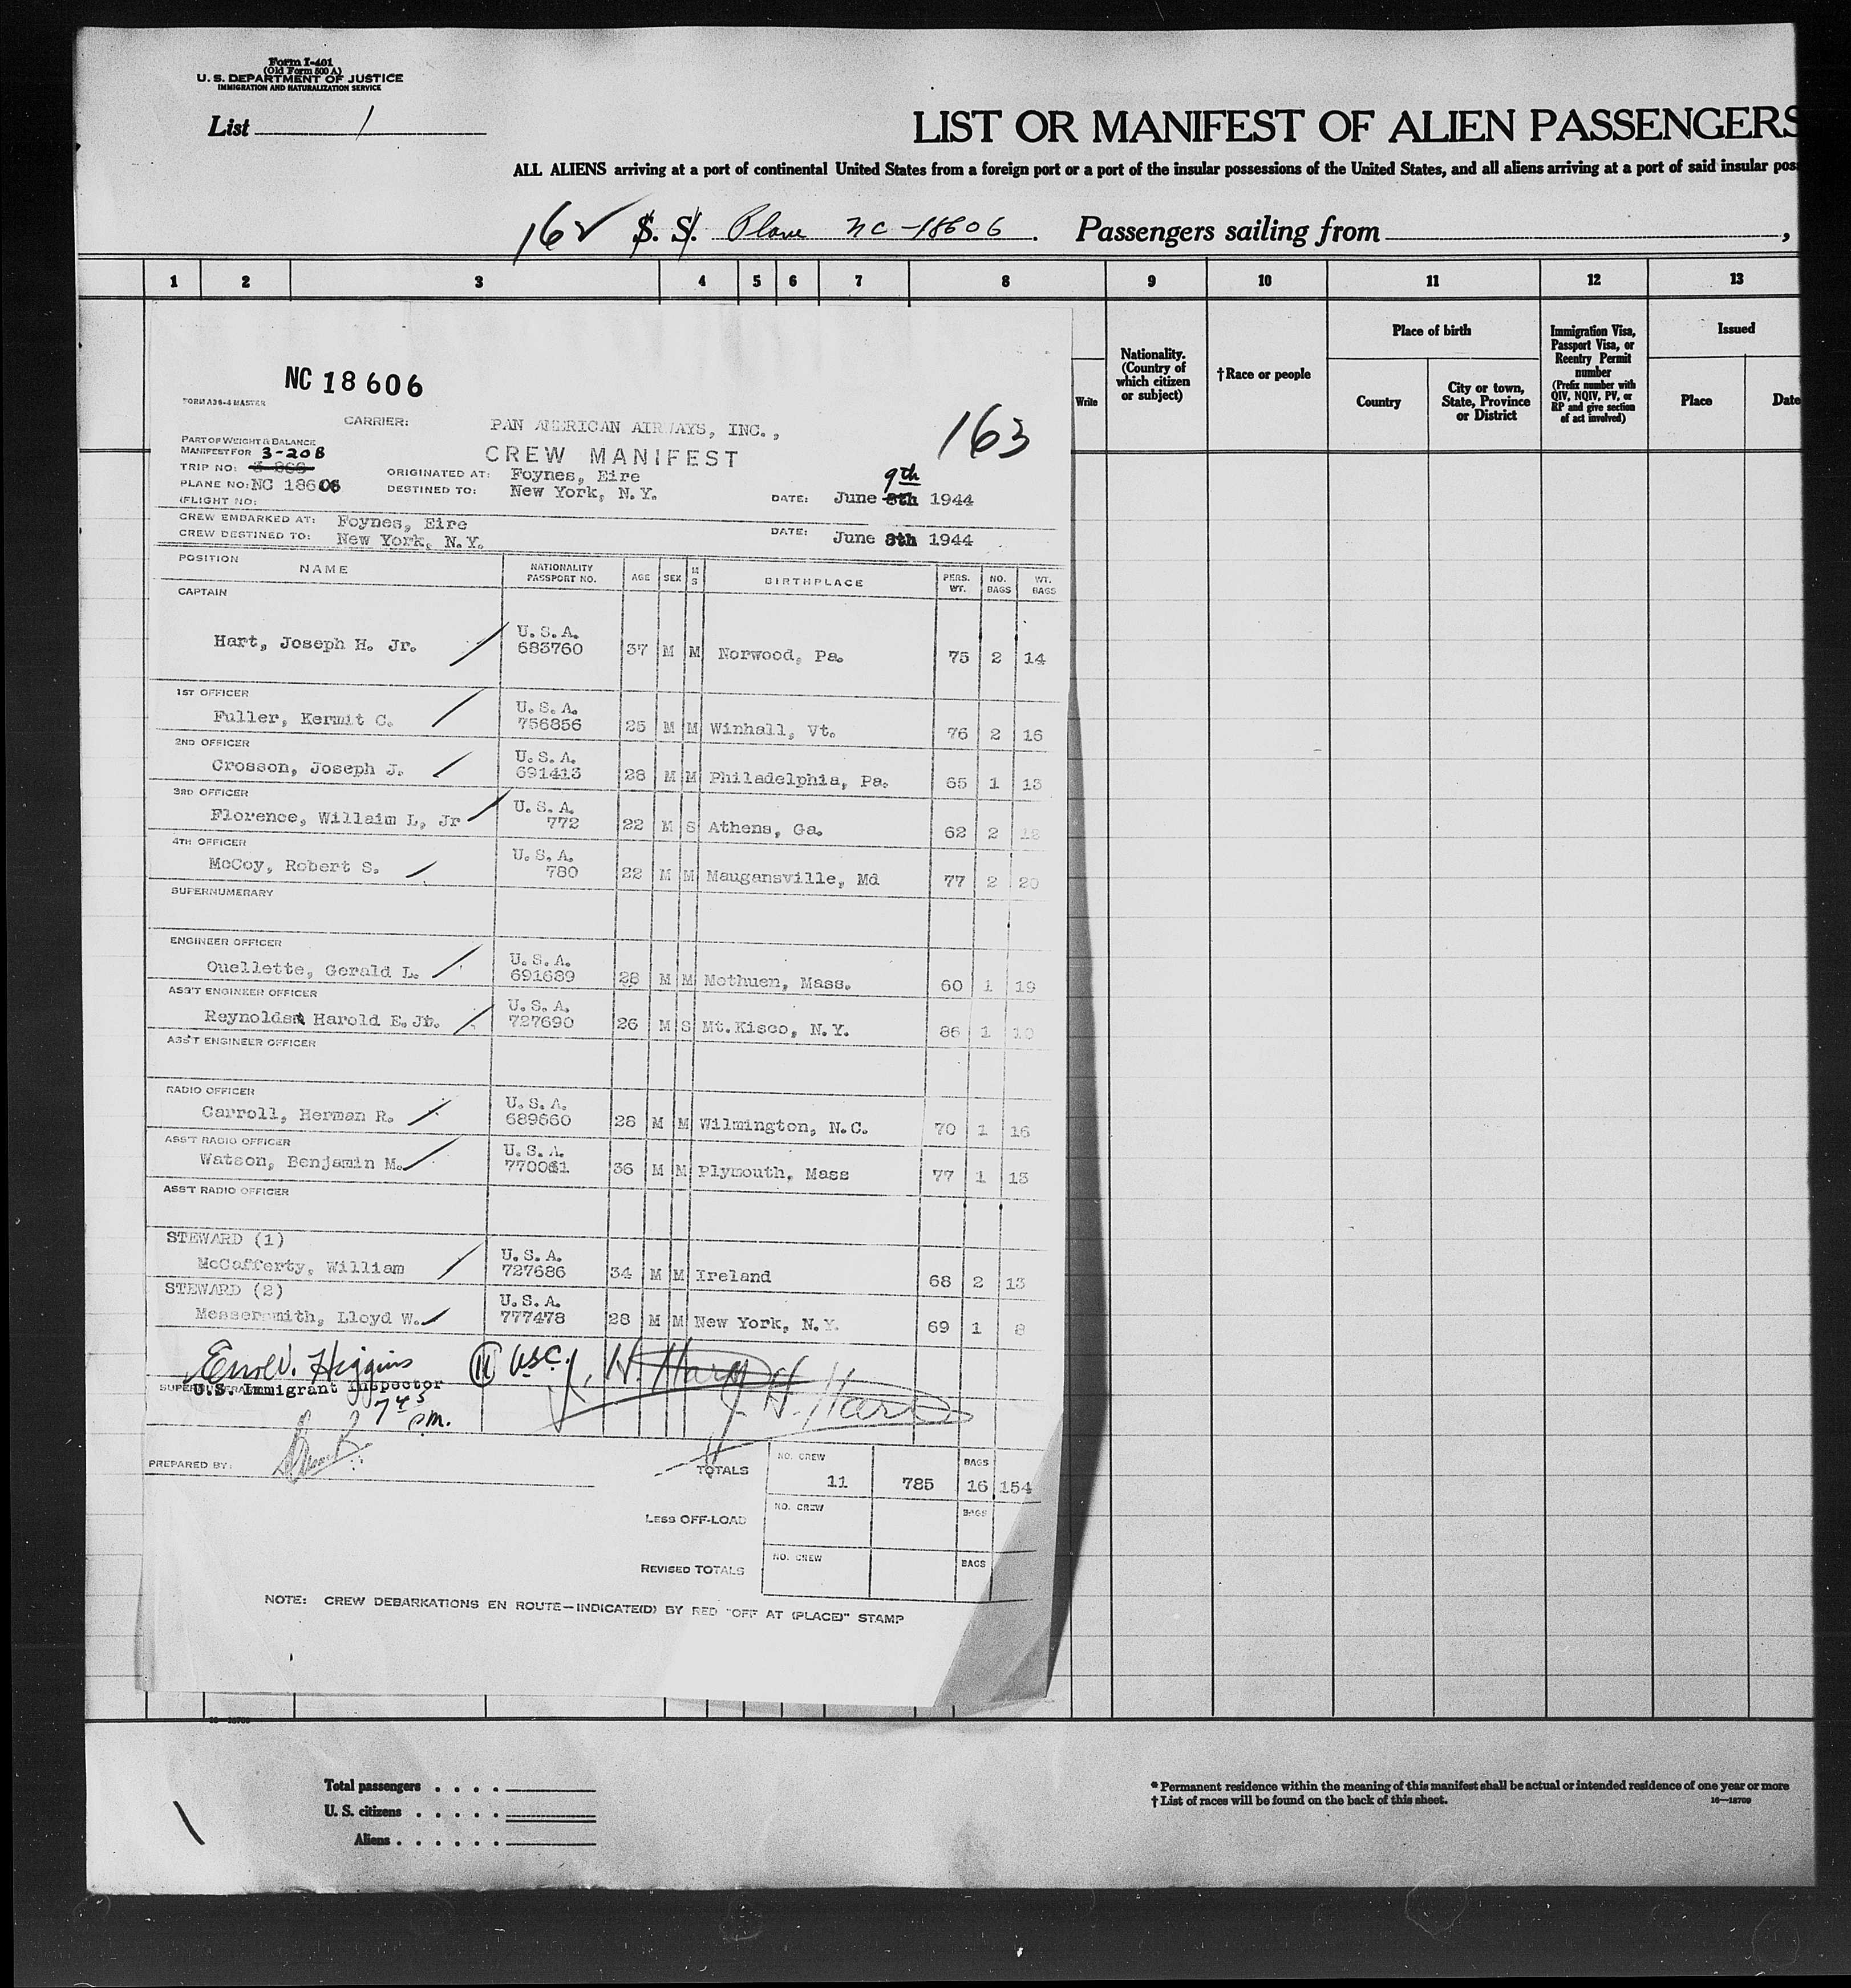 Form I-401
(Old Form 500 A)
U. S. DEPARTMENT OF JUSTICE
IMMIGRATION AND NATURALIZATION SERVICE
List 1
LIST OR MANIFEST OF ALIEN PASSENGERS
ALL ALIENS arriving at a port of continental United States from a foreign port or a port of the insular possessions of the United States, and all aliens arriving at a port of said insular pos
162 S. S. Plane NC-18606. Passengers sailing from ,
1 2 3 4 5 6 7 8 9 10 11 12 13
Write
Nationality. (Country of which citizen or subject)
†Race or people
Place of birth
Country
City or town, State, Province or District
Immigration Visa, Passport Visa, or Reentry Permit number
(Prefix number with QIV, NQIV, PV, or RP and give section of act involved)
Issued
Place
Date
NC 18606
FORM A36-4 MASTER
CARRIER: PAN AMERICAN AIRWAYS, INC.,
163
PART OF WEIGHT & BALANCE
MANIFEST FOR 3-208
CREW MANIFEST
TRIP NO:
ORIGINATED AT: Foynes, Eire
9th
PLANE NO: NC 18606
DESTINED TO: New York, N.Y.
DATE: June 8th 1944
(FLIGHT NO:
CREW EMBARKED AT: Foynes, Eire
CREW DESTINED TO: New York, N.Y.
DATE: June 8th 1944
POSITION NAME NATIONALITY PASSPORT NO. AGE SEX M S BIRTHPLACE PERS. WT. NO. BAGS WT. BAGS
CAPTAIN
Hart, Joseph H. Jr. U.S.A. 683760 37 M M Norwood, Pa. 75 2 14
1ST OFFICER
Fuller, Kermit C. U.S.A. 756856 25 M M Winhall, Vt. 76 2 16
2ND OFFICER
Crosson, Joseph J. U.S.A. 691413 28 M M Philadelphia, Pa. 65 1 13
3RD OFFICER
Florence, Willaim L, Jr U.S.A. 772 22 M S Athens, Ga. 62 2
4TH OFFICER
McCoy, Robert S. U.S.A. 780 22 M M Maugansville, Md 77 2 20
SUPERNUMERARY
ENGINEER OFFICER
Ouellette, Gerald L. U.S.A. 691689 28 M M Methuen, Mass. 60 1 19
ASS'T ENGINEER OFFICER
Reynolds Harold E. Jr. U.S.A. 727690 26 M S Mt.Kisco, N.Y. 86 1 10
ASS'T ENGINEER OFFICER
RADIO OFFICER
Carroll, Herman R. U.S.A. 689660 28 M M Wilmington, N.C. 70 1 16
ASS'T RADIO OFFICER
Watson, Benjamin M. U.S.A. 770061 36 M M Plymouth, Mass 77 1 13
ASS'T RADIO OFFICER
STEWARD (1)
McCafferty, William U.S.A. 727686 34 M M Ireland 68 2 13
STEWARD (2)
Messersmith, Lloyd W. U.S.A. 777478 28 M M New York, N.Y. 69 1 8
Higgins 11 USC. J. H. Hart
U.S. Immigrant Inspector
J. H. Hart
7 45 pm.
PREPARED BY:
TOTALS NO. CREW 11 785 BAGS 16 154
LESS OFF-LOAD NO. CREW BAGS
REVISED TOTALS NO. CREW BAGS
NOTE: CREW DEBARKATIONS EN ROUTE—INDICATE(D) BY RED "OFF AT (PLACE)" STAMP
16—18709
Total passengers . . . .
U. S. citizens . . . . .
Aliens . . . . . .
* Permanent residence within the meaning of this manifest shall be actual or intended residence of one year or more
† List of races will be found on the back of this sheet.
16—18709